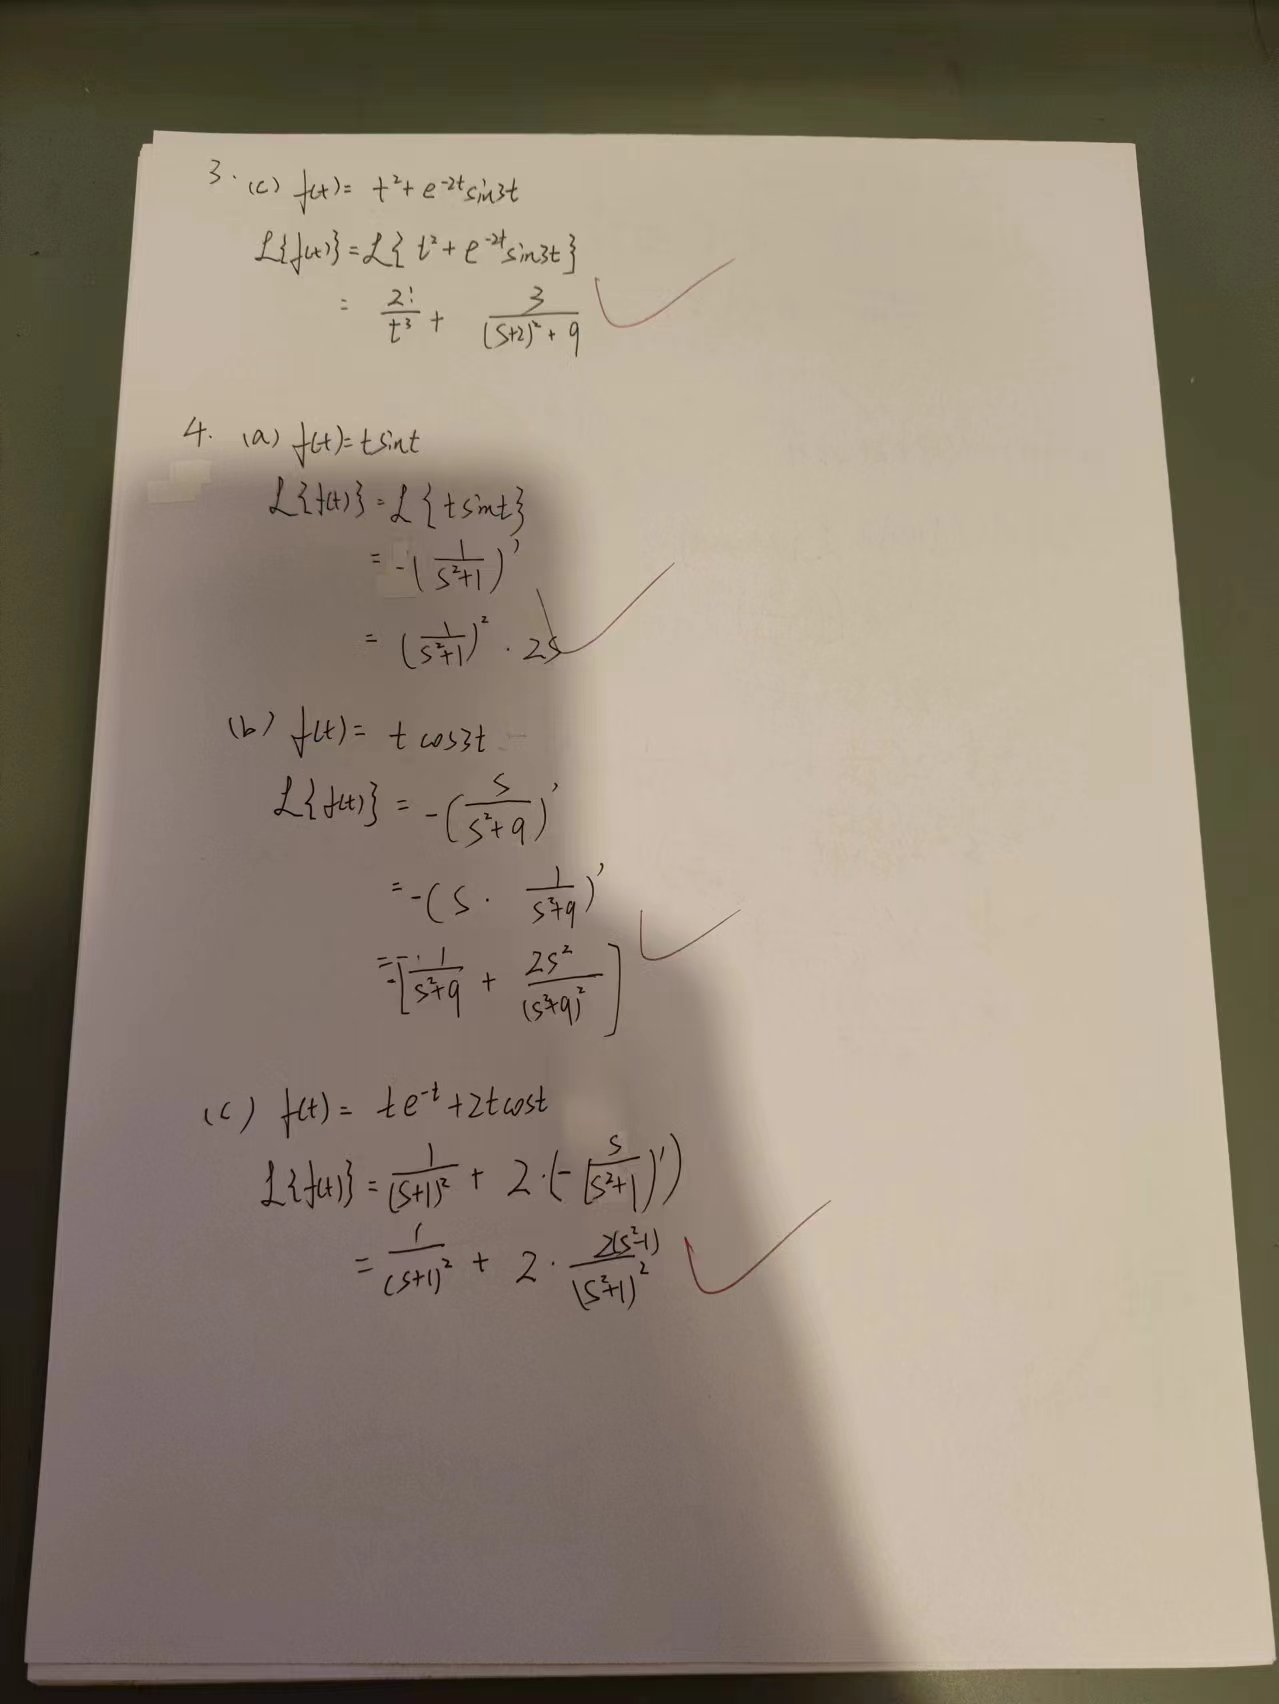 3. (c) f(t) = t² + e^{-2t} sin3t
ℒ{f(t)} = ℒ{ t² + e^{-2t} sin3t }
= 2!/t³ + 3/((s+2)² + 9)
4. (a) f(t) = t sint
ℒ{f(t)} = ℒ{ t sint }
= -(1/(s²+1))'
= (1/(s²+1))² · 2s
(b) f(t) = t cos3t
ℒ{f(t)} = -(s/(s²+9))'
= -(s · 1/(s²+9))'
= -[1/(s²+9) + 2s²/(s²+9)²]
(c) f(t) = te^{-t} + 2t cost
ℒ{f(t)} = 1/(s+1)² + 2·(-(s/(s²+1))')
= 1/(s+1)² + 2 · 2(s²-1)/(s²+1)²